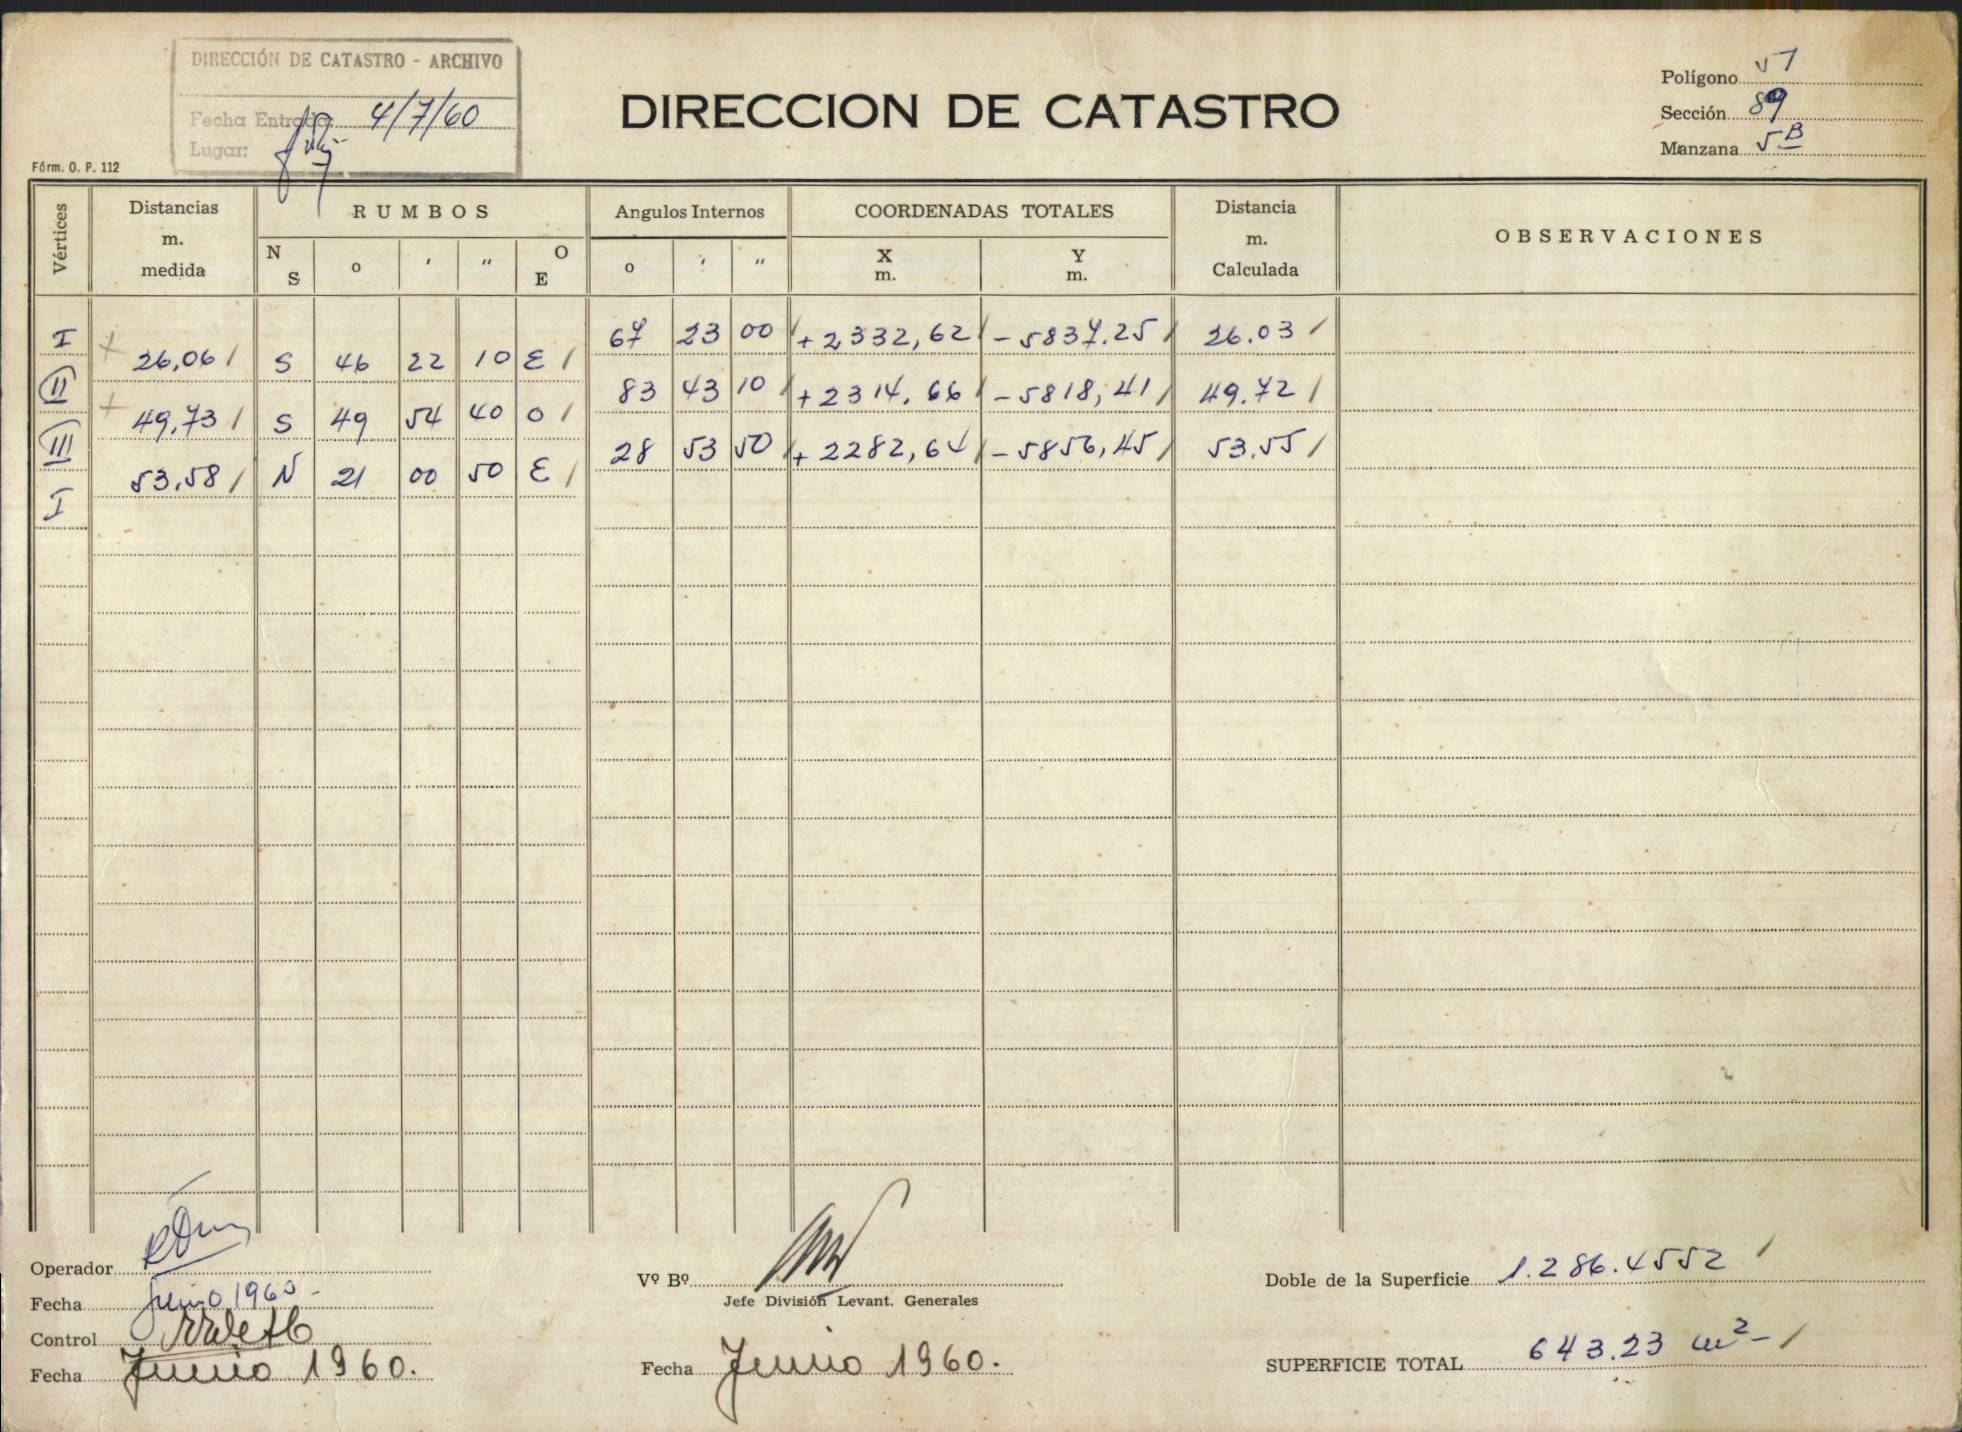 DIRECCIÓN DE CATASTRO - ARCHIVO
Fecha Entrada: 4/7/60
Lugar:
Fórm. O. P. 112
DIRECCION DE CATASTRO
Polígono 57
Sección 89
Manzana 5B
Vértices Distancias m. medida RUMBOS Angulos Internos COORDENADAS TOTALES Distancia m. Calculada OBSERVACIONES
N S o ' " O E o ' " X m. Y m.
I 67 23 00 +2332,62 -5837.25 26.03
26,06 S 46 22 10 E
II 83 43 10 +2314.66 -5818,41 49.72
49,73 S 49 54 40 O
III 28 53 50 +2282,64 -5856,45 53.55
53.58 N 21 00 50 E
I
Operador
Fecha Junio 1960-
Control
Fecha Junio 1960.
Vº Bº
Jefe División Levant. Generales
Fecha Junio 1960.
Doble de la Superficie 1.286.4552
SUPERFICIE TOTAL 643.23 m²-